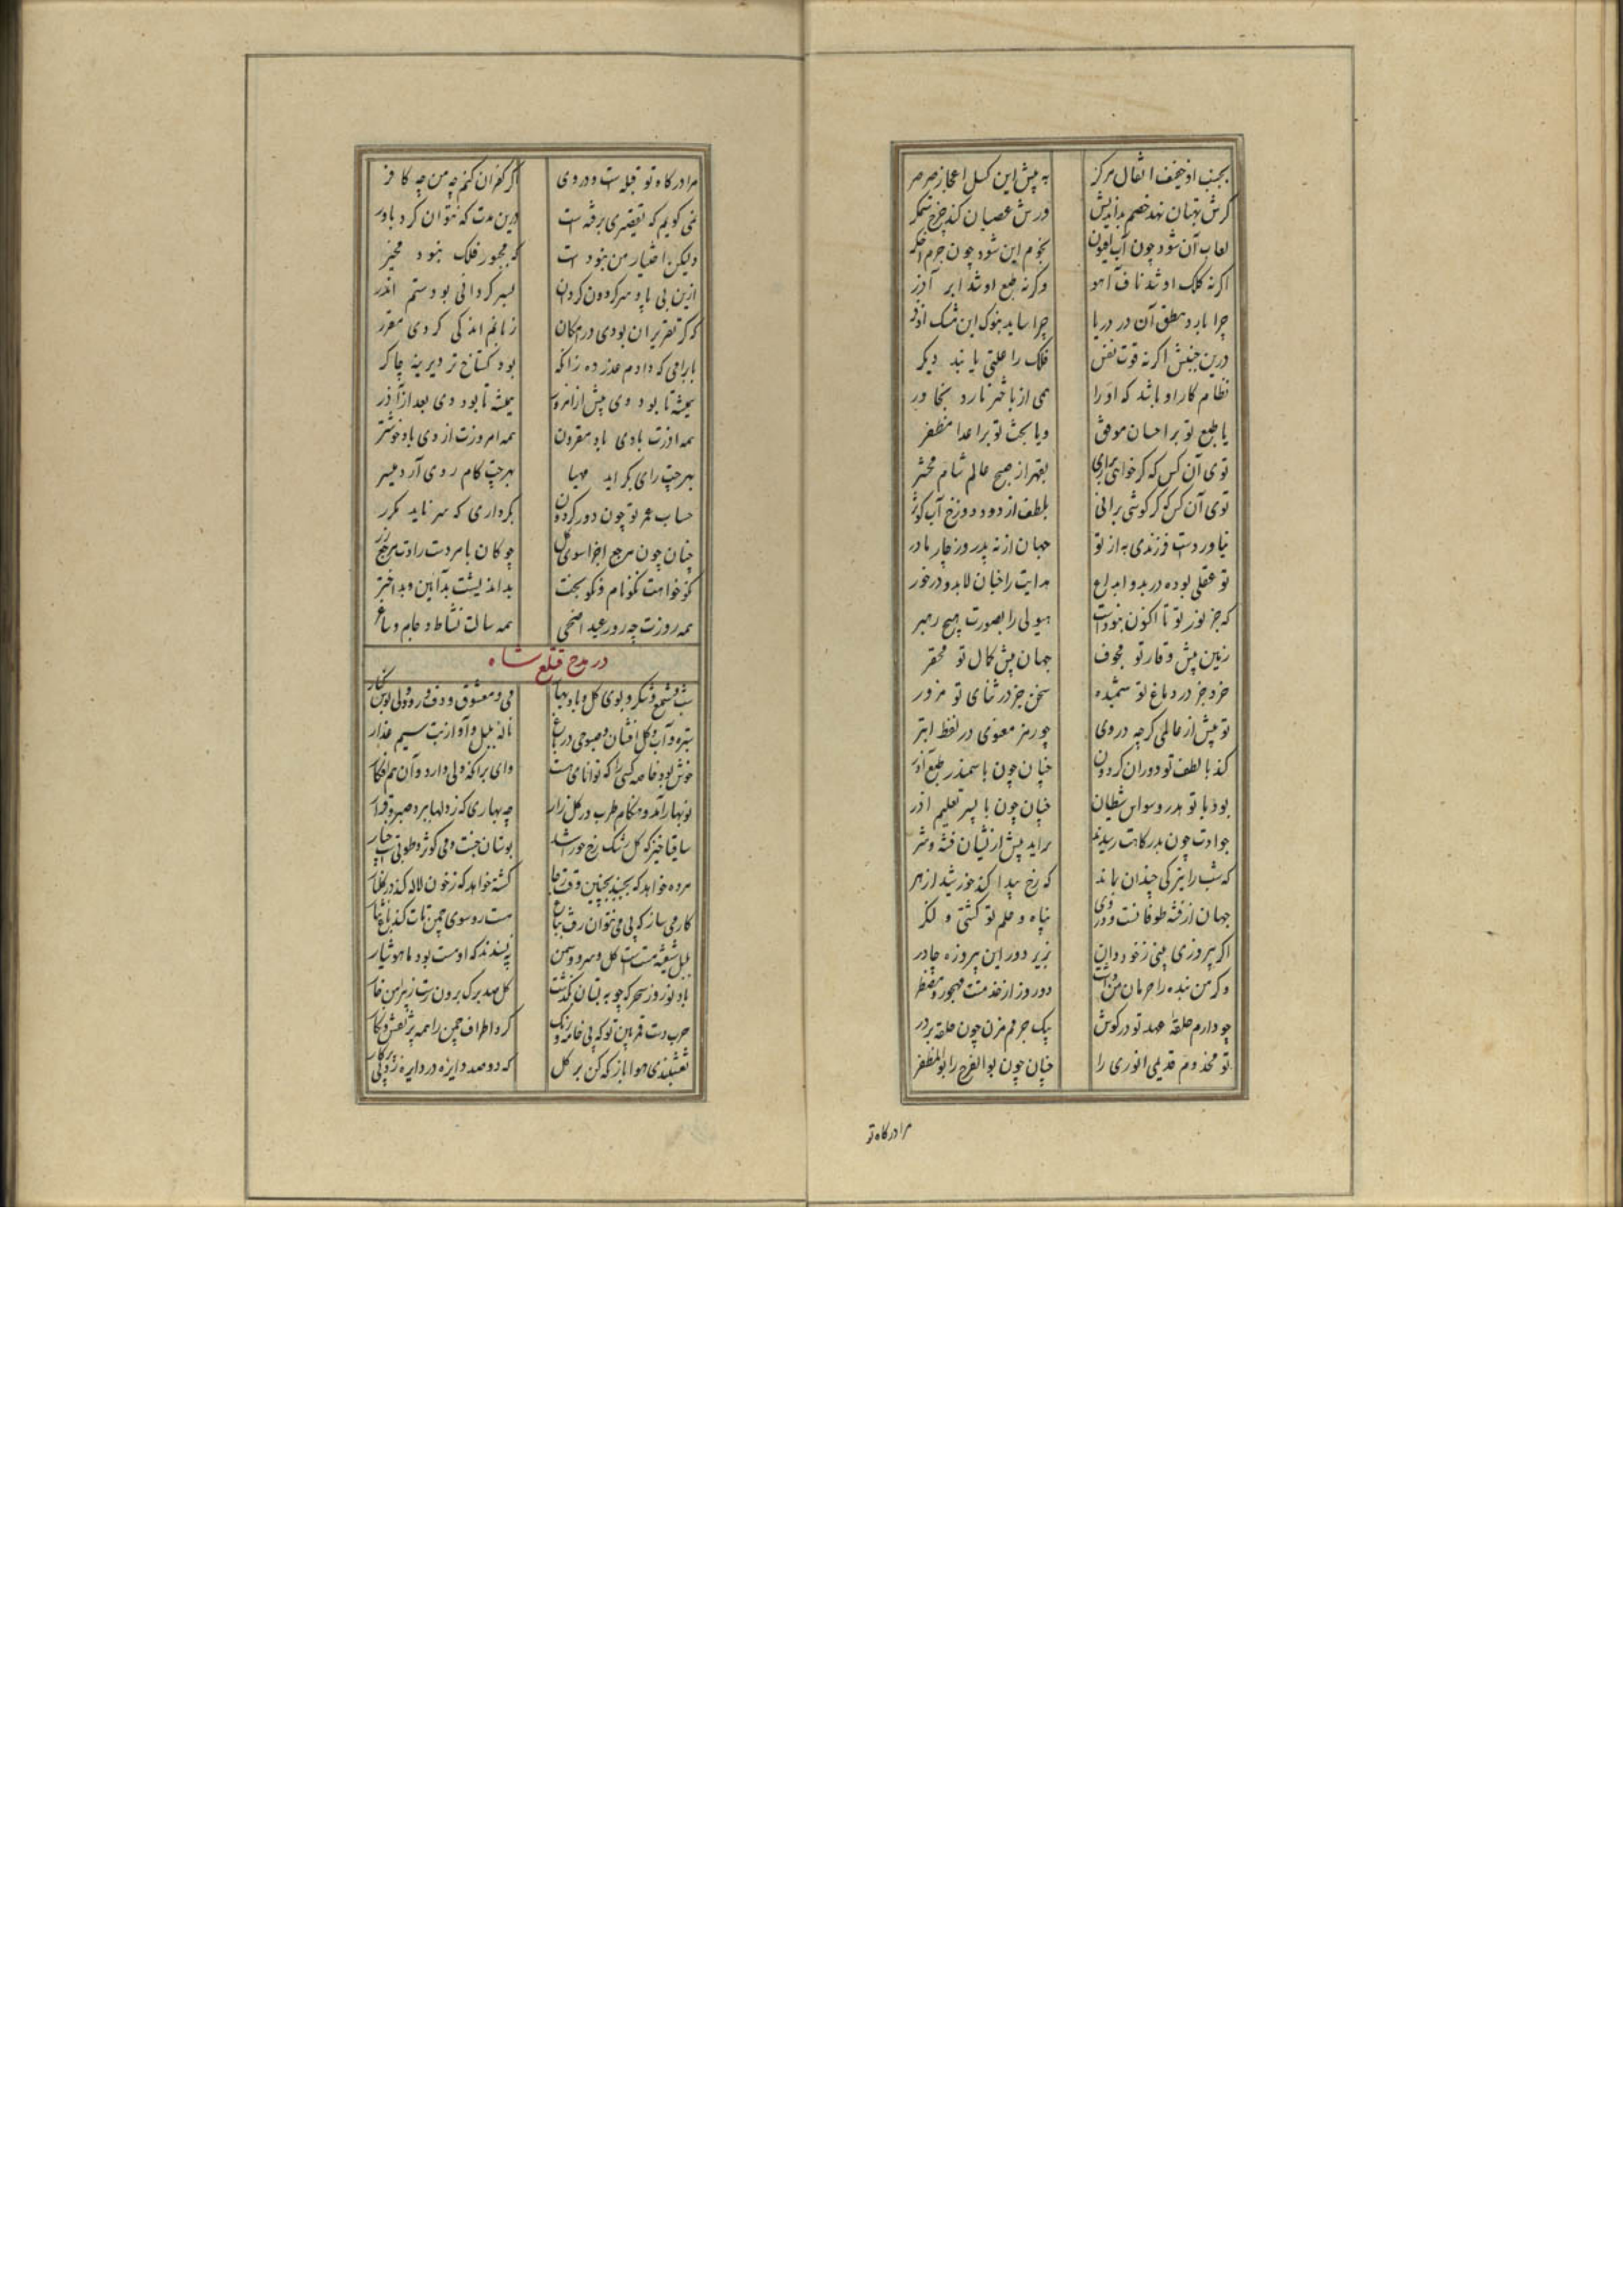 بجنب او خفیف اثقال مرکز به پیش این کسل اعجاز صرصر
کرش بهتان نهد خصم بداندیش ورش عصیان کند چرخ ستمکر
لعاب آن شود چون آب افیون نجوم این شود چون جرم اخکر
اکرنه کلک او شد ناف آهو وکرنه طبع او شد ابر آذر
چرا بارد بنطق آن در دریا چرا ساید بنوک این مشک اذفر
درین جنبش اکرنه قوت نفس فلک را علتی یابند دیکر
نظام کار او باشد که او را همی از باختر نارد بخاور
یا طبع تو بر احسان موفق ویا بخت تو بر اعدا مظفر
توی آن کس که کر خواهی برآری بقهر از صبح عالم شام محشر
توی آن کس که کر کوشی برانی بلطف از دود دوزخ آب کوثر
نیاوردست فرزندی به از تو جهان از نه پدر وز چار مادر
تو عقلی بوده در بدو ابداع هدایت را چنان لابد و درخور
که جز نور تو تا اکنون نبودست هیولی را بصورت هیچ رهبر
زمین پیش وقار تو مجوف جهان پیش کمال تو محقر
خرد جز در دماغ تو سمیده سخن جز در ثنای تو مزور
تو پیش از عالمی کرچه دروی چو رمز معنوی در لفظ ابتر
کند با لطف تو دوران کردون چنان چون با سمندر طبع آذر
بود با تو هدر وسواس شیطان چنان چون با پسر تعلیم آذر
حوادث چون بدرکاهت رسیدند براید پیش ازیشان فتنه و شر
که شب را تیرکی چندان بماند که رخ پیدا کند خورشید ازهر
جهان از فتنه طوفانست و دروی پناه و حلم تو کشتی و لنکر
اکر پیروزی بینی ز خود دان بزیر دور این پیروزه چادر
وکر من بنده را حرمان من داشت دو روز از خدمتت مهجور و مضطر
چو دارم حلقه عهد تو در کوش بیک جرمم مزن چون حلقه بر در
تو مخدوم قدیمی انوری را چنان چون بوالفرج را بوالمظفر
مرا درکاه تو
مرا درکاه تو قبله ست و دروی اکر کفران کنم چه من چه کافر
نمی کویم که تقصیری نرفته ست درین مدت که نتوان کرد باور
ولیکن اختیار من نبودست که مجبور فلک نبود مخیر
ازین بی پا و سر کردون کردان بسر کردانی بودستم اندر
که کر تقریر آن بودی در امکان زبانم اندکی کردی مقرر
بابرامی که دادم عذر ده زانکه بود کستاخ تر دیرینه چاکر
همیشه تا بود دی پیش از امروز همیشه تا بود دی بعد از آذر
همه آذرت بادی باد مقرون همه امروزت از دی باد خوشتر
بهرچت رای بکراید مهیا بهرچت کام روی آرد میسر
حساب عمر تو چون دور کردون بکرداری که سر ناید مکرر
چنان چون مرجع اجزا سوی کل چو کان با مر دست رادت مرجح زر
نکو خواهت نکونام و نکوبخت بداندیشت بدآئین و بداختر
همه روزت چه روز عید اضحی همه سالت نشاط و جام و ساغر
در مدح قتلغ شاه
شب و شمع و شکر و بوی کل و باد بهار می و معشوق و دف و رود و نی و بوس و کنار
سبزه و آب و کل افشان و صبوحی در باغ ناله بلبل و آواز بت سیم عذار
خوش بود خاصه کسی را که توانائی هست وای بر آنکه دلی دارد و آن هم افکار
نوبهار آمد و هنکام طرب در کلزار چه بهاری که ز دلها ببرد صبر و قرار
ساقیا خیز که کل رشک رخ حور شد بوستان جنت و می کوثر و طوبی ست چنار
مرده خواهد که بجنبد بچنین وقت ز جا کشته خواهد که ز خون لاله کند با کلنار
کار می ساز که بی می نتوان رفت بباغ مست رو سوی چمن تات کند باغ نثار
بلبل شیفته مست است و کل و سرو و سمن نپسندند که او مست بود ما هوشیار
باد نوروز سحرکه چو به بستان بکذشت کل صد برک برون رست ز پیرامن خار
چرب دستی فلک بین تو که بی خامه و رنک کرد اطراف چمن را همه پر نقش و نکار
نقشبندی هوا باز نکه کن بر کل که دو صد دایره در دایره زد بی پرکار